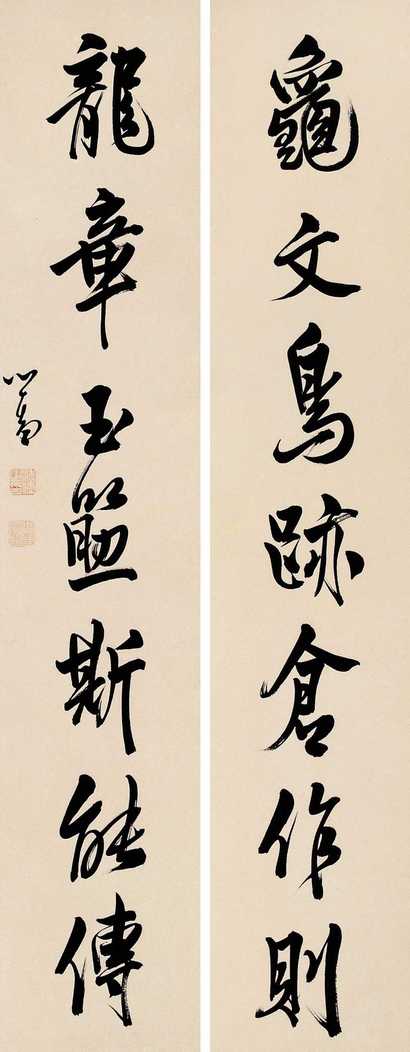 龜文鳥跡倉作則
龍章玉筯斯能傳
心畬